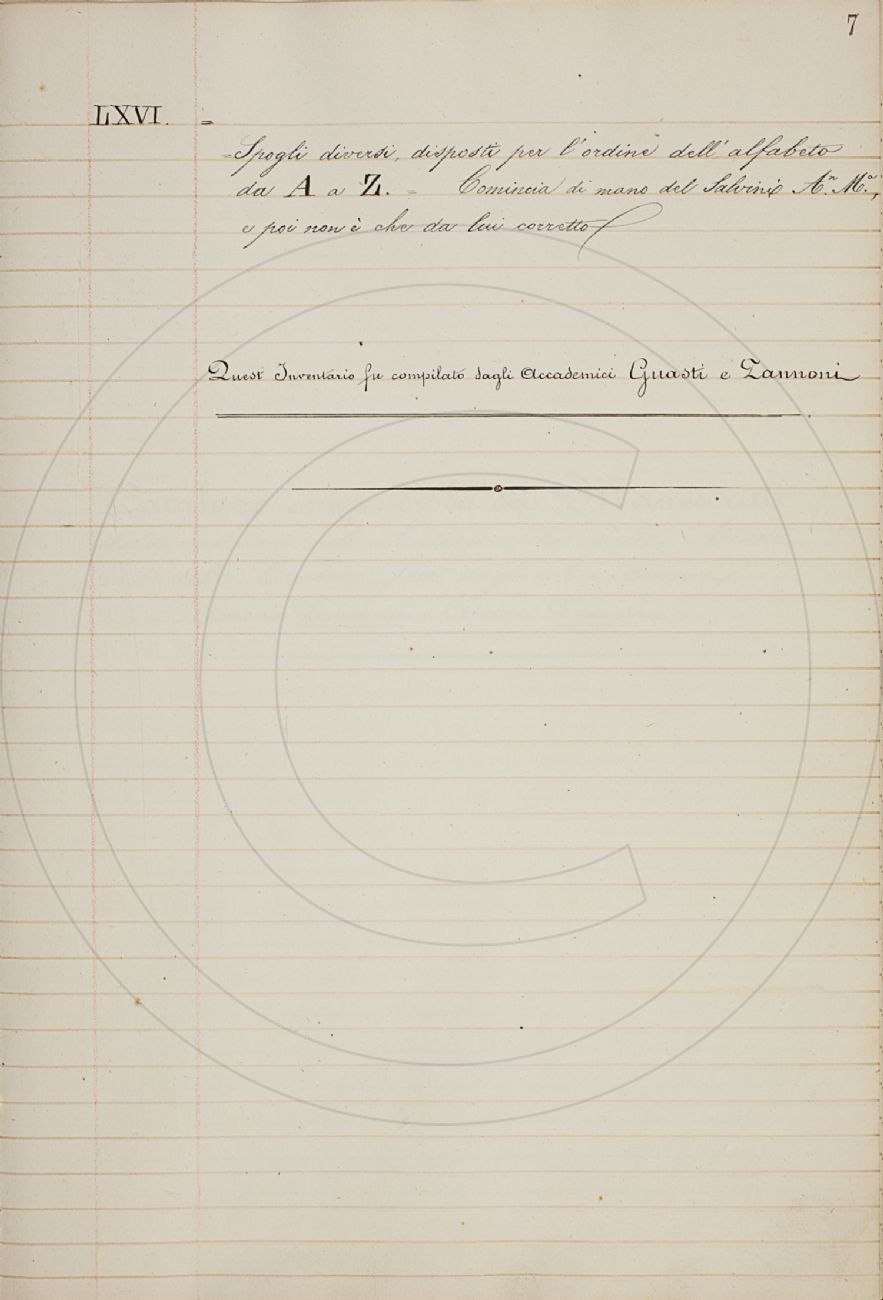 7
LXVI. =
-Spogli diversi, disposti per l'ordine dell'alfabeto
da A a Z. = Comincia di mano del Salvini Aⁿ. Mª.,
e poi non è che da lui corretto
Quest Inventario fu compilato dagli Accademici Guasti e Zannoni